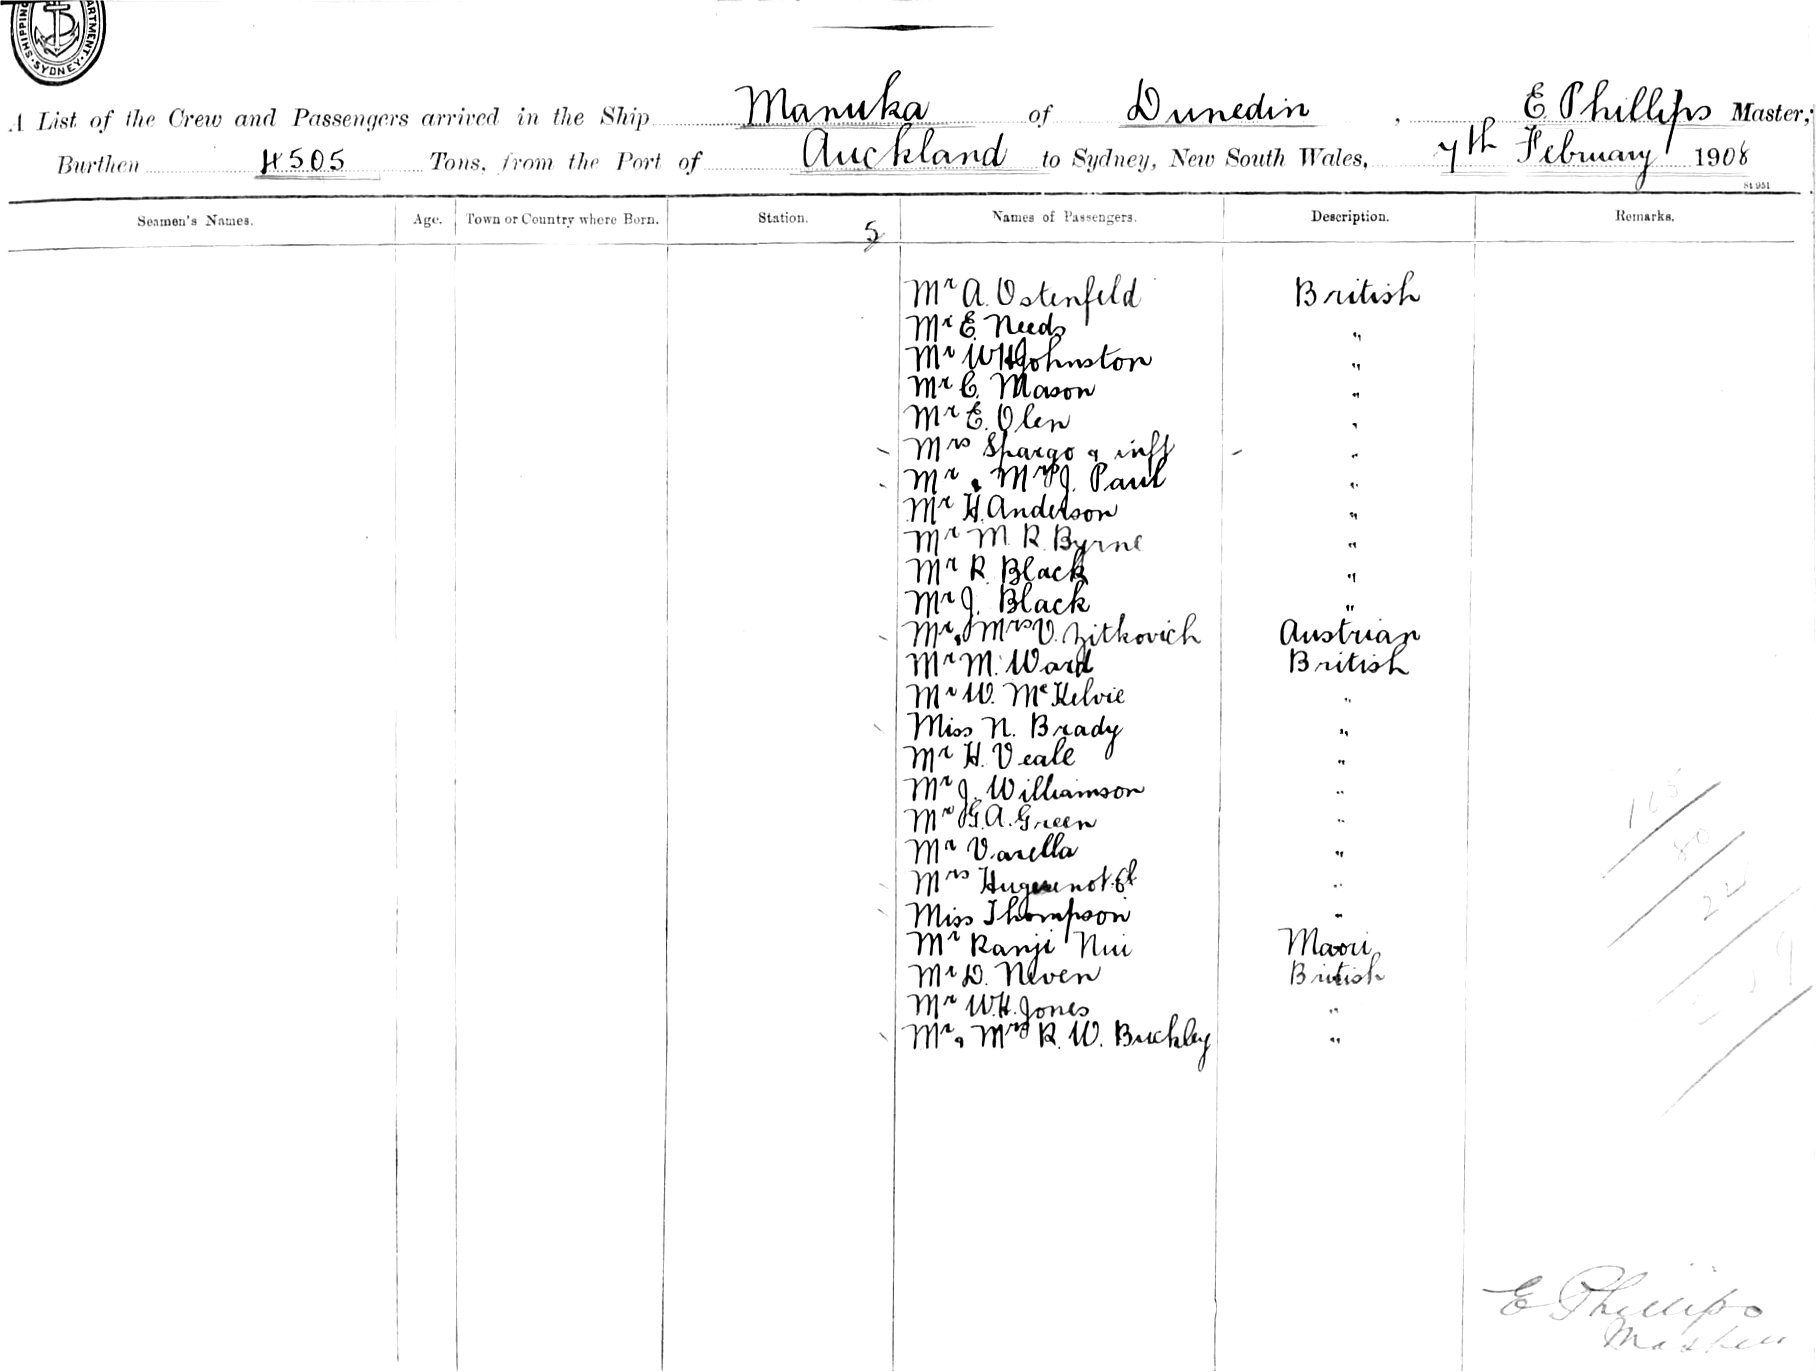 SHIPPING DEPARTMENT SYDNEY
A List of the Crew and Passengers arrived in the Ship Manuka of Dunedin, E Phillips Master,
Burthen 4505 Tons, from the Port of Auckland to Sydney, New South Wales, 7th February 1908
St 951
Seamen's Names. Age. Town or Country where Born. Station. Names of Passengers. Description. Remarks.
5
Mr A. Ostenfeld British
Mr E. Needs "
Mr W H Johnston "
Mr C. Mason "
Mr E. Olen "
Mrs Spargo & inft "
Mr & Mrs J. Paul "
Mr H. Anderson "
Mr M. R. Byrne "
Mr R. Black "
Mr J. Black "
Mr & Mrs V. Zitkovich Austrian
Mr M. Ward British
Mr W. McKelvie "
Miss N. Brady "
Mr H. Veale "
Mr J. Williamson "
Mr G. A. Green "
Mr Varella "
Mrs Huguenot "
Miss Thompson "
Mr Ranji Nui Maori
Mr D. Niven British
Mr W. H. Jones "
Mr & Mrs R. W. Buckley "
E Phillips
Master